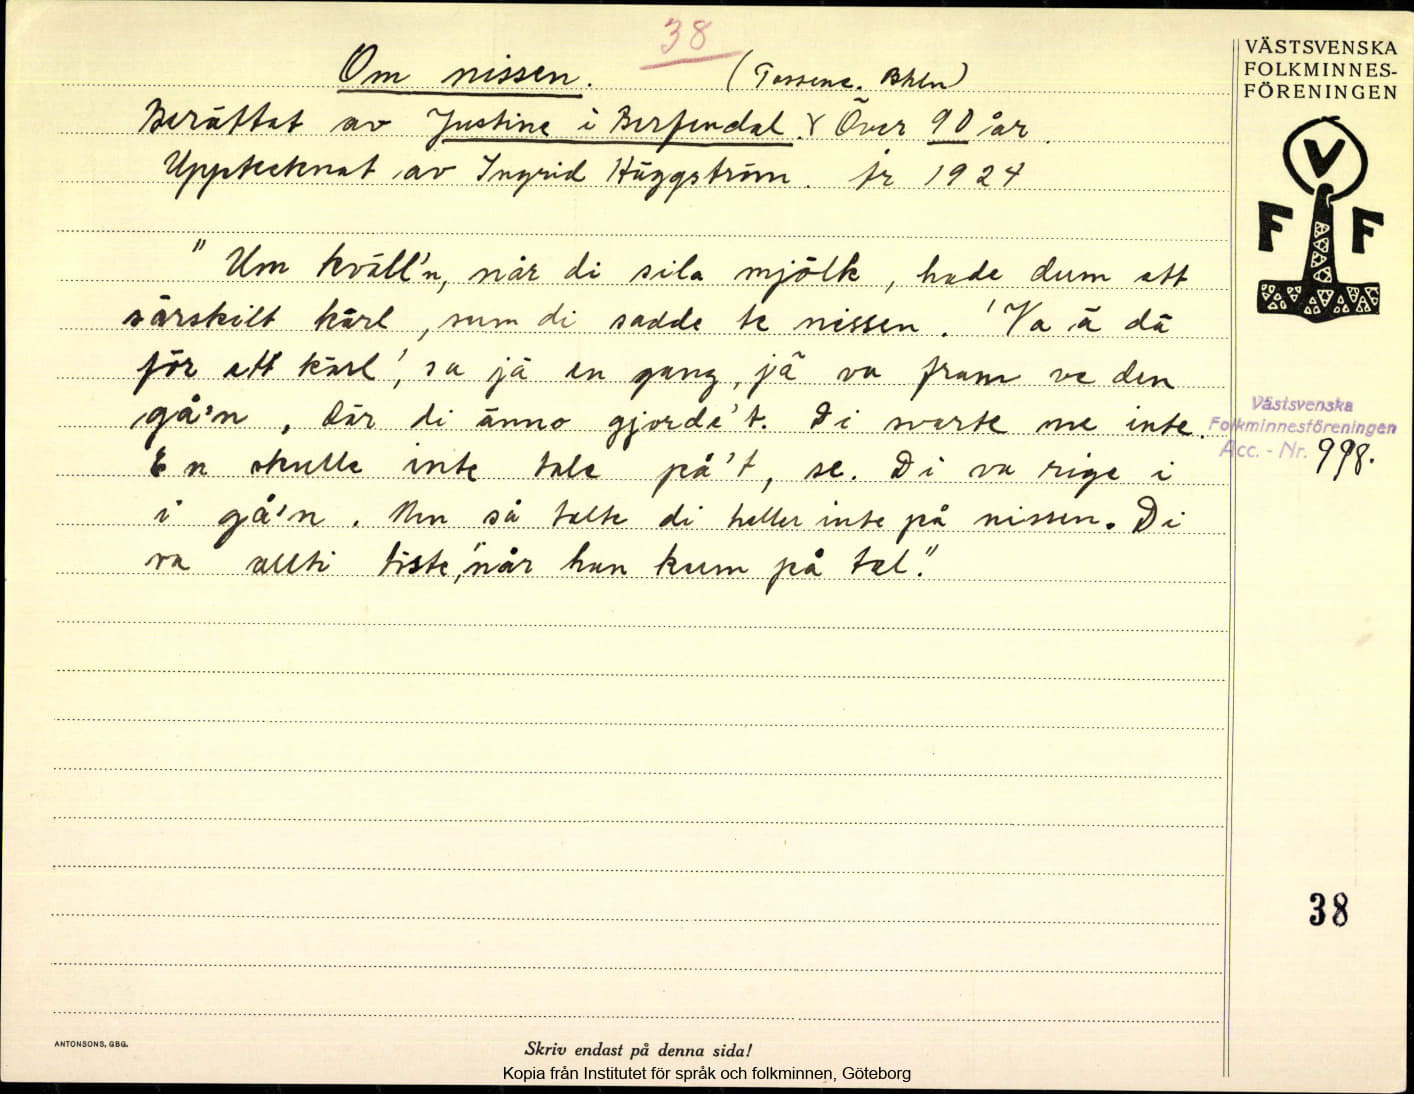 38
Om nissen. (Tossene. Bhln)
Berättat av Justine i Berfendal. Över 90 år.
Upptecknat av Ingrid Häggström. år 1924
"Um kväll'n, når di sila mjölk, hade dum ett
särskilt kärl, sum di sadde te nissen. 'Va ä dä
för ett kärl', sa jä en gang, jä va fram ve den
gå'n, där di änno gjorde't. Di svarte me inte.
En skulle inte tale på't, se. Di va rige i
i gå'n. Men så talte di heller inte på nissen. Di
va allti tiste, når han kum på tal."
VÄSTSVENSKA
FOLKMINNES-
FÖRENINGEN
V
F F
Västsvenska
Folkminnesföreningen
Acc. - Nr. 998.
38
ANTONSONS, GBG.
Skriv endast på denna sida!
Kopia från Institutet för språk och folkminnen, Göteborg